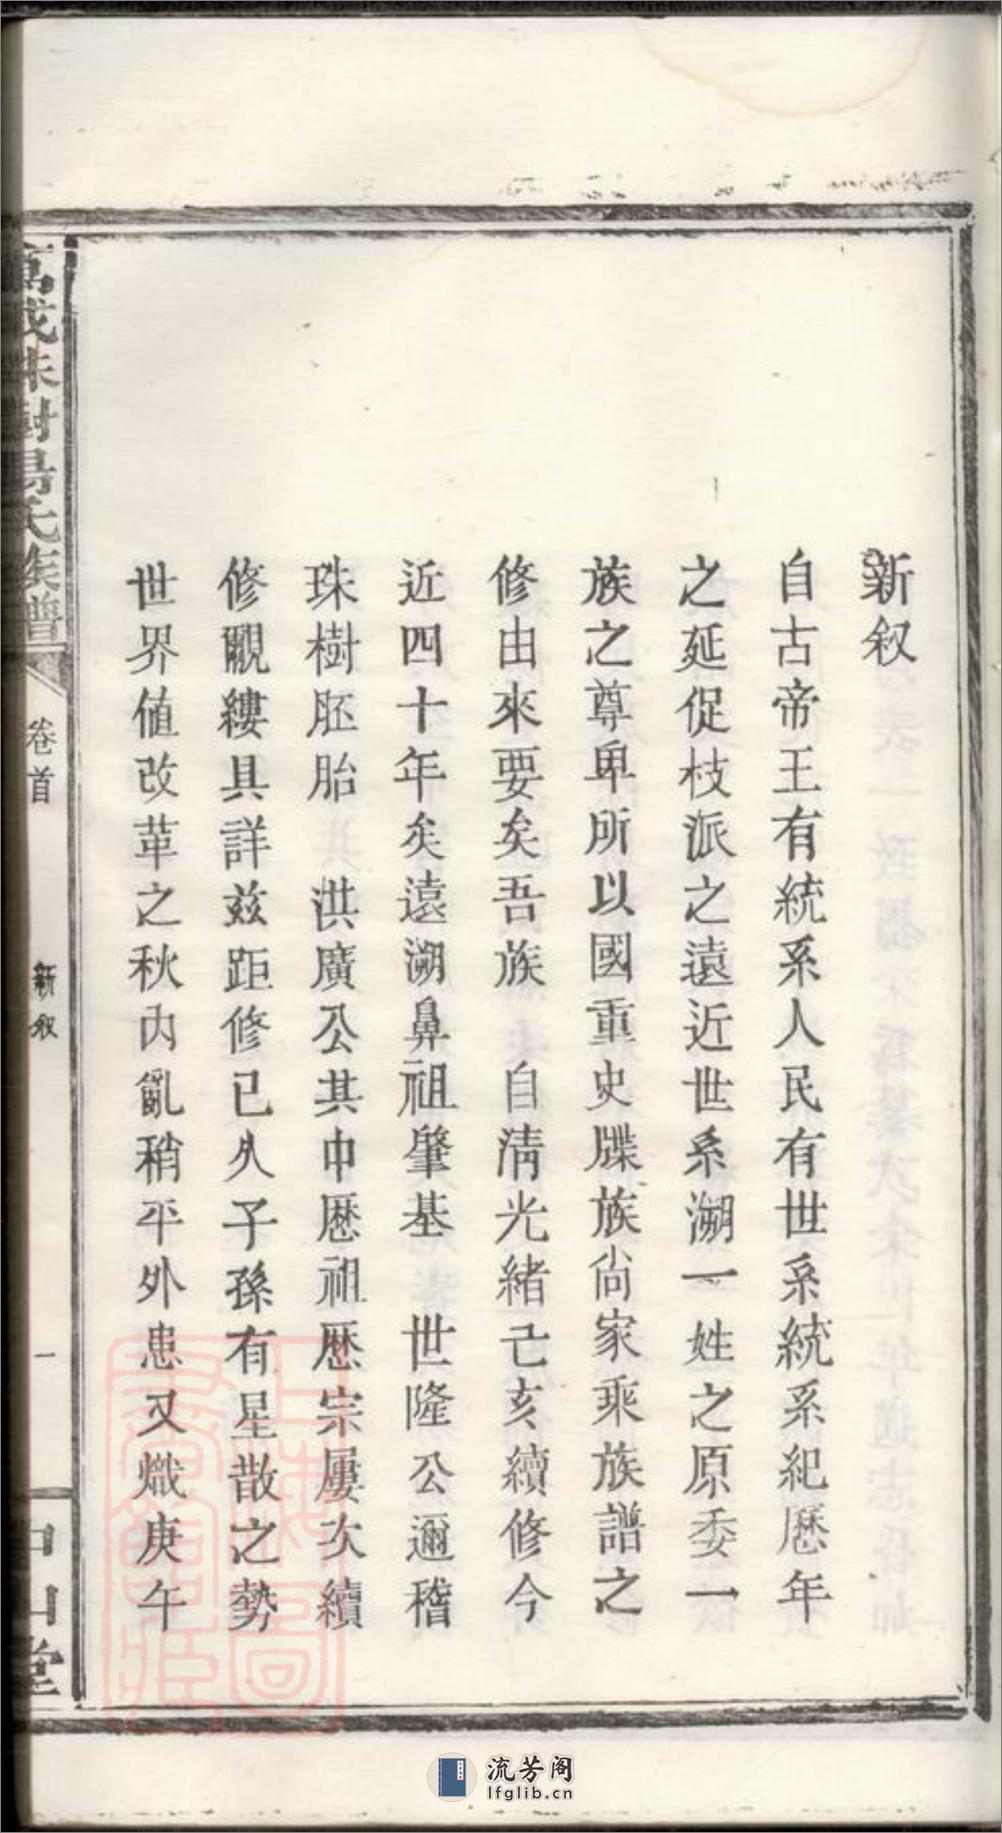 新叙
自古帝王有統系人民有世系統系紀歷年
之延促枝派之遠近世系溯一姓之原委一
族之尊卑所以國重史牒族尙家乘族譜之
修由來要矣吾族 自清光緒乙亥續修今
近四十年矣遠溯鼻祖肇基 世隆公邇稽
珠樹胚胎 洪廣公其中歷祖歷宗屢次續
修覼縷具詳兹距修已久子孫有星散之勢
世界值改革之秋內亂稍平外患又熾庚午
萬成珠樹易氏族譜
卷首
新叙
一
堂
上海圖書館藏
流芳阁
lfglib.cn